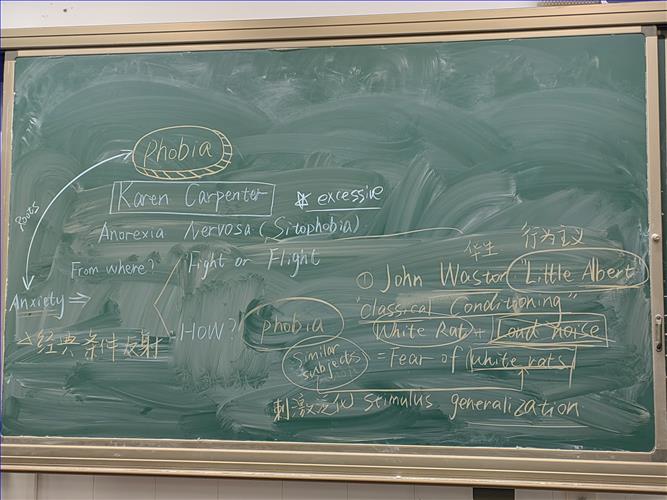 Phobia
Karen Carpenter * excessive
Roots
Anorexia Nervosa (Sitophobia)
From where? Fight or Flight
Anxiety ⇒
华生 行为主义
① John Waston "Little Albert"
"Classical Conditioning"
HOW? phobia
White Rat + Loud noise
△经典条件反射
Similar subjects = Fear of white rats
刺激泛化 stimulus generalization